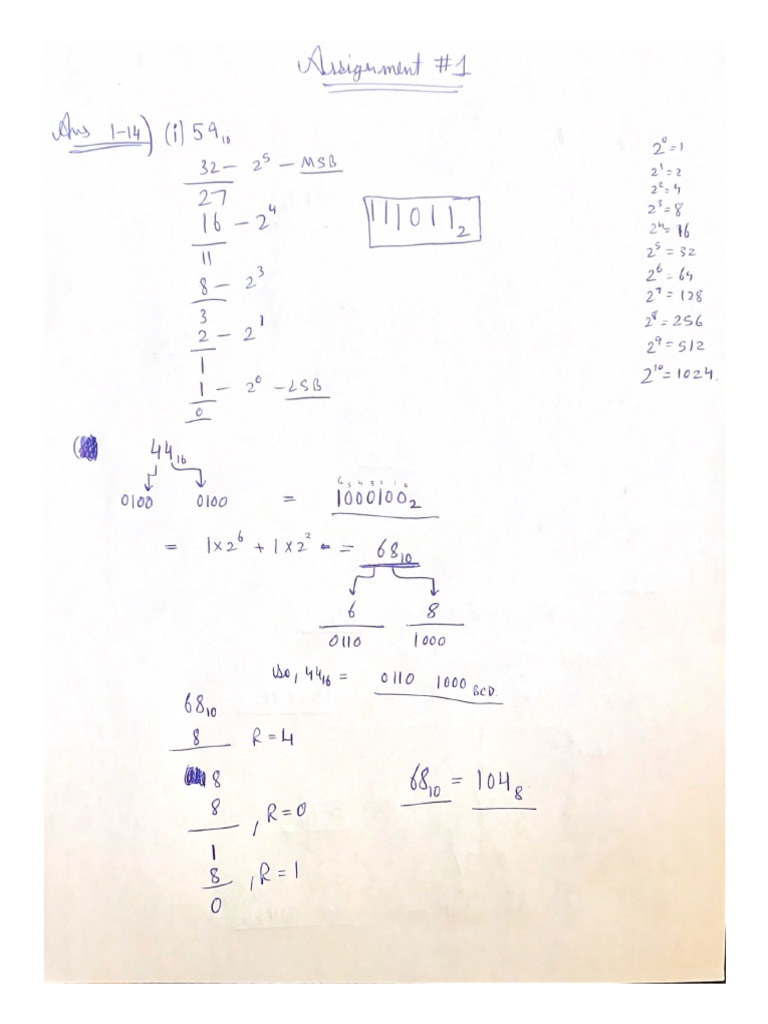 Assignment #1
Ans 1-14) (i) 59₁₀
32 - 2⁵ - MSB
27
16 - 2⁴
11
8 - 2³
3
2 - 2¹
1
1 - 2⁰ - LSB
0
111011₂
2⁰=1
2¹=2
2²=4
2³=8
2⁴=16
2⁵=32
2⁶=64
2⁷=128
2⁸=256
2⁹=512
2¹⁰=1024.
(
44₁₆
6 5 4 3 2 1 0
0100 0100 = 1000100₂
= 1×2⁶ + 1×2² = 68₁₀
6 8
0110 1000
So, 44₁₆ = 0110 1000 BCD.
68₁₀
8 R=4
8
8 , R=0
1
8 , R=1
0
68₁₀ = 104₈